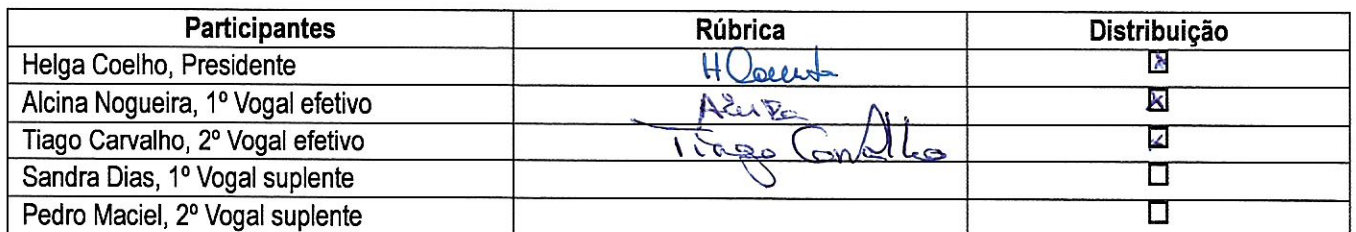 Participantes Rúbrica Distribuição
Helga Coelho, Presidente ☒
Alcina Nogueira, 1º Vogal efetivo ☒
Tiago Carvalho, 2º Vogal efetivo Tiago Carvalho ☒
Sandra Dias, 1º Vogal suplente ☐
Pedro Maciel, 2º Vogal suplente ☐